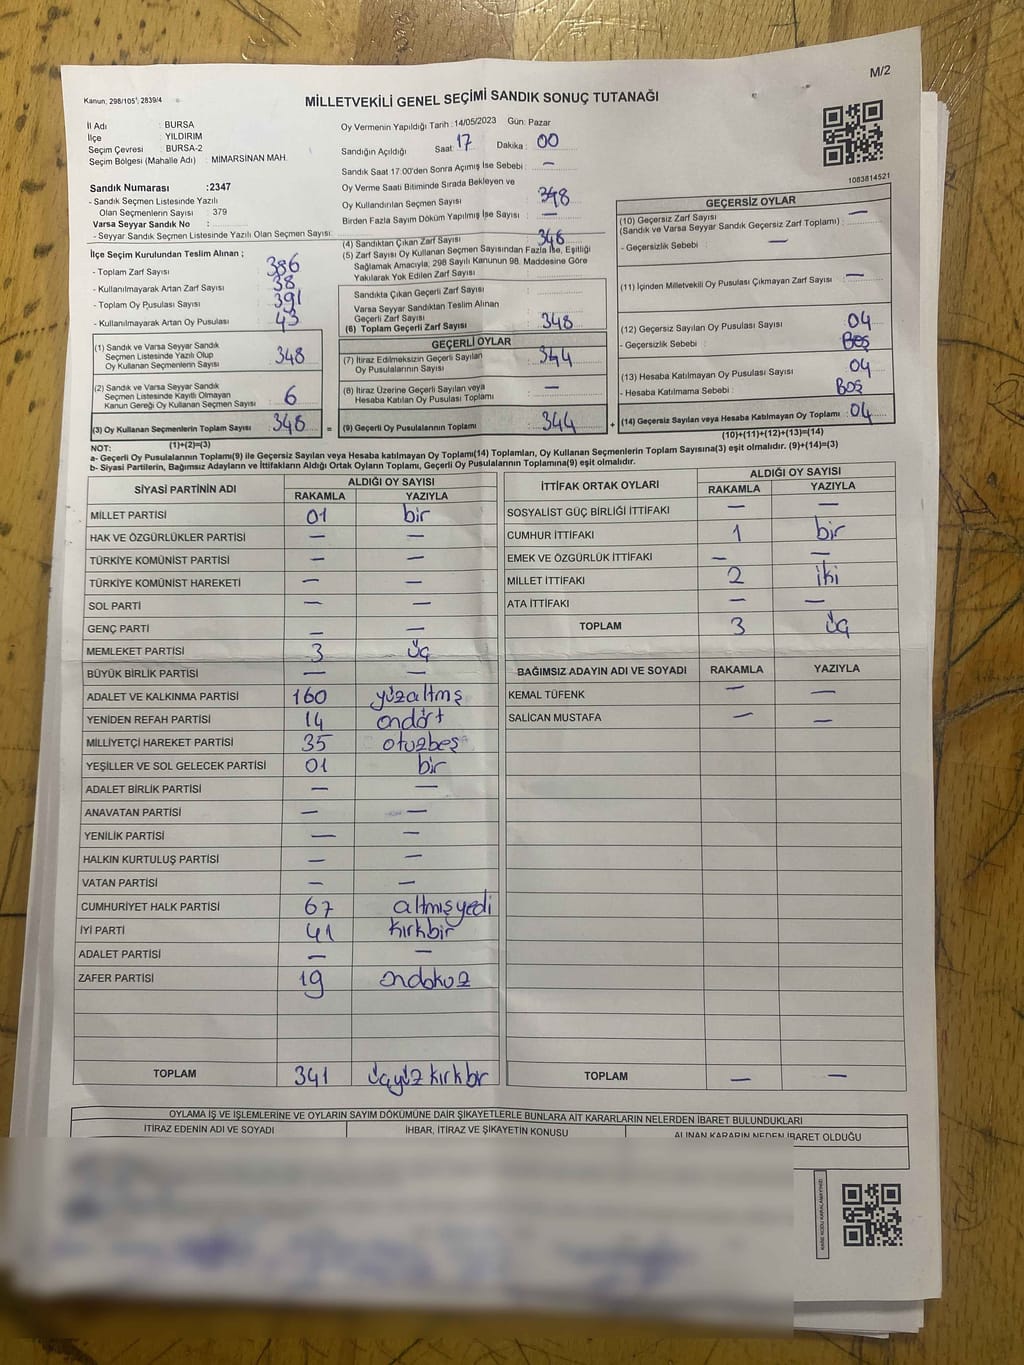 M/2
Kanun: 298/105¹, 2839/4
MİLLETVEKİLİ GENEL SEÇİMİ SANDIK SONUÇ TUTANAĞI
İl Adı : BURSA
İlçe : YILDIRIM
Seçim Çevresi : BURSA-2
Seçim Bölgesi (Mahalle Adı) : MİMARSİNAN MAH.
Sandık Numarası :2347
- Sandık Seçmen Listesinde Yazılı
Olan Seçmenlerin Sayısı : 379
Varsa Seyyar Sandık No :
- Seyyar Sandık Seçmen Listesinde Yazılı Olan Seçmen Sayısı:
Oy Vermenin Yapıldığı Tarih :14/05/2023 Gün: Pazar
Sandığın Açıldığı Saat : 17 Dakika : 00
Sandık Saat 17.00'den Sonra Açımış İse Sebebi : —
Oy Verme Saati Bitiminde Sırada Bekleyen ve
Oy Kullandırılan Seçmen Sayısı : 348
Birden Fazla Sayım Döküm Yapılmış İse Sayısı : —
1083814521
İlçe Seçim Kurulundan Teslim Alınan ;
- Toplam Zarf Sayısı : 386
- Kullanılmayarak Artan Zarf Sayısı : 38
- Toplam Oy Pusulası Sayısı : 391
- Kullanılmayarak Artan Oy Pusulası : 43
(1) Sandık ve Varsa Seyyar Sandık
Seçmen Listesinde Yazılı Olup
Oy Kullanan Seçmenlerin Sayısı : 348
(2) Sandık ve Varsa Seyyar Sandık
Seçmen Listesinde Kayıtlı Olmayan
Kanun Gereği Oy Kullanan Seçmen Sayısı : 6
(3) Oy Kullanan Seçmenlerin Toplam Sayısı : 348
(4) Sandıktan Çıkan Zarf Sayısı : 348
(5) Zarf Sayısı Oy Kullanan Seçmen Sayısından Fazla İse, Eşitliği
Sağlamak Amacıyla, 298 Sayılı Kanunun 98. Maddesine Göre
Yakılarak Yok Edilen Zarf Sayısı :
Sandıkta Çıkan Geçerli Zarf Sayısı :
Varsa Seyyar Sandıktan Teslim Alınan
Geçerli Zarf Sayısı :
(6) Toplam Geçerli Zarf Sayısı : 348
GEÇERLİ OYLAR
(7) İtiraz Edilmeksizin Geçerli Sayılan
Oy Pusulalarının Sayısı : 344
(8) İtiraz Üzerine Geçerli Sayılan veya
Hesaba Katılan Oy Pusulası Toplamı : —
= (9) Geçerli Oy Pusulalarının Toplamı : 344
GEÇERSİZ OYLAR
(10) Geçersiz Zarf Sayısı : —
(Sandık ve Varsa Seyyar Sandık Geçersiz Zarf Toplamı) :
- Geçersizlik Sebebi : —
(11) İçinden Milletvekili Oy Pusulası Çıkmayan Zarf Sayısı : —
(12) Geçersiz Sayılan Oy Pusulası Sayısı : 04
- Geçersizlik Sebebi : Boş
(13) Hesaba Katılmayan Oy Pusulası Sayısı : 04
- Hesaba Katılmama Sebebi : Boş
+ (14) Geçersiz Sayılan veya Hesaba Katılmayan Oy Toplamı : 04
(1)+(2)=(3)
(10)+(11)+(12)+(13)=(14)
NOT:
a- Geçerli Oy Pusulalarının Toplamı(9) ile Geçersiz Sayılan veya Hesaba katılmayan Oy Toplamı(14) Toplamları, Oy Kullanan Seçmenlerin Toplam Sayısına(3) eşit olmalıdır. (9)+(14)=(3)
b- Siyasi Partilerin, Bağımsız Adayların ve İttifakların Aldığı Ortak Oyların Toplamı, Geçerli Oy Pusulalarının Toplamına(9) eşit olmalıdır.
SİYASİ PARTİNİN ADI ALDIĞI OY SAYISI
RAKAMLA YAZIYLA
MİLLET PARTİSİ 01 bir
HAK VE ÖZGÜRLÜKLER PARTİSİ — —
TÜRKİYE KOMÜNİST PARTİSİ — —
TÜRKİYE KOMÜNİST HAREKETİ — —
SOL PARTİ — —
GENÇ PARTİ — —
MEMLEKET PARTİSİ 3 üç
BÜYÜK BİRLİK PARTİSİ — —
ADALET VE KALKINMA PARTİSİ 160 yüzaltmş
YENİDEN REFAH PARTİSİ 14 ondört
MİLLİYETÇİ HAREKET PARTİSİ 35 otuzbeş
YEŞİLLER VE SOL GELECEK PARTİSİ 01 bir
ADALET BİRLİK PARTİSİ — —
ANAVATAN PARTİSİ — —
YENİLİK PARTİSİ — —
HALKIN KURTULUŞ PARTİSİ — —
VATAN PARTİSİ — —
CUMHURİYET HALK PARTİSİ 67 altmışyedi
İYİ PARTİ 41 kırkbir
ADALET PARTİSİ — —
ZAFER PARTİSİ 19 ondokuz
TOPLAM 341 üçyüz kırkbir
İTTİFAK ORTAK OYLARI ALDIĞI OY SAYISI
RAKAMLA YAZIYLA
SOSYALİST GÜÇ BİRLİĞİ İTTİFAKI — —
CUMHUR İTTİFAKI 1 bir
EMEK VE ÖZGÜRLÜK İTTİFAKI — —
MİLLET İTTİFAKI 2 iki
ATA İTTİFAKI — —
TOPLAM 3 üç
BAĞIMSIZ ADAYIN ADI VE SOYADI RAKAMLA YAZIYLA
KEMAL TÜFENK — —
SALİCAN MUSTAFA — —
TOPLAM — —
OYLAMA İŞ VE İŞLEMLERİNE VE OYLARIN SAYIM DÖKÜMÜNE DAİR ŞİKAYETLERLE BUNLARA AİT KARARLARIN NELERDEN İBARET BULUNDUKLARI
İTİRAZ EDENİN ADI VE SOYADI İHBAR, İTİRAZ VE ŞİKAYETİN KONUSU ALINAN KARARIN NEDEN İBARET OLDUĞU
KARE KODU KARALAMAYINIZ!